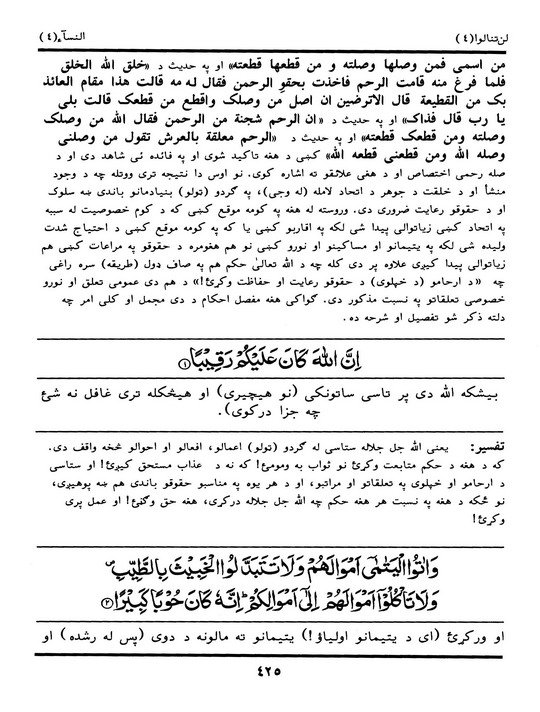 لن تنالوا (٤) النسآء (٤)
من اسمى فمن وصلها وصلته و من قطعها قطعته» او په حديث د «خلق الله الخلق
فلما فرغ منه قامت الرحم فاخذت بحقو الرحمن فقال له مه قالت هذا مقام العائذ
بك من القطيعة قال الاترضين ان اصل من وصلك واقطع من قطعك قالت بلى
يا رب قال فذاك» او په حديث د «ان الرحم شجنة من الرحمن فقال الله من وصلك
وصلته ومن قطعك قطعته» او په حديث د «الرحم معلقة بالعرش تقول من وصلنى
وصله الله ومن قطعنى قطعه الله» کښې د هغه تاکيد شوى او په فائده ئې شاهد دى او د
صله رحمى اختصاص او د هغې علاقتو ته اشاره کوى. نو اوس دا نتيجه ترى ووتله چه د وجود
منشأ او د خلقت د جوهر د اتحاد لامله (له وجې)، په گردو (تولو) بنيادمانو باندى ښه سلوک
او د حقوقو رعايت ضرورى دى. وروسته له هغه په کومه موقع کښې که د کوم خصوصيت له سببه
په اتحاد کښې زياتوالى پيدا شى لکه په اقاربو کښې يا که په کومه موقع کښې د احتياج شدت
وليده شى لکه په يتيمانو او مساکينو او نورو کښې نو هم هغومره د حقوقو په مراعات کښې هم
زياتوالى پيدا کيږى علاوه پر دى کله چه د الله تعالىٰ حکم هم په صاف ډول (طريقه) سره راغى
چه «د ارحامو (د خپلوى) د حقوقو رعايت او حفاظت وکړئ!» د هم دى عمومى تعلق او نورو
خصوصى تعلقاتو په نسبت مذکور دى. گواکې هغه مفصل احکام د دى مجمل او کلى امر چه
دلته ذکر شو تفصيل او شرحه ده.
اِنَّ اللهَ كَانَ عَلَيْكُمْ رَقِيْبًا ①
بيشکه الله دى پر تاسى ساتونکى (نو هيچيرى) او هيڅکله ترى غافل نه شئ
چه جزا درکوى).
تفسير: يعنى الله جل جلاله ستاسى له گردو (تولو) اعمالو، افعالو او احوالو څخه واقف دى.
که د هغه د حکم متابعت وکړئ نو ثواب به ومومئ! که نه د عذاب مستحق کيږئ! او ستاسى
د ارحامو او خپلوى په تعلقاتو او مراتبو، او د هر يوه په مناسبو حقوقو باندى هم ښه پوهيږى،
نو ځکه د هغه په نسبت هر هغه حکم چه الله جل جلاله درکړى، هغه حق وگڼئ! او عمل پرى
وکړئ!
وَاٰتُوا الْيَتٰمٰى اَمْوَالَهُمْ وَلَا تَتَبَدَّلُوا الْخَبِيْثَ بِالطَّيِّبِ
وَلَا تَاْكُلُوْٓا اَمْوَالَهُمْ اِلٰٓى اَمْوَالِكُمْ ؕ اِنَّهٗ كَانَ حُوْبًا كَبِيْرًا ②
او ورکړئ (اى د يتيمانو اولياؤ!) يتيمانو ته مالونه د دوى (پس له رشده) او
٤٢٥